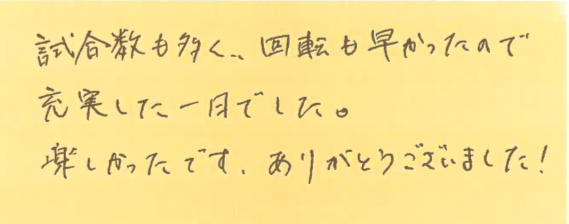 試合数も多く、回転も早かったので
充実した一日でした。
楽しかったです、ありがとうございました!